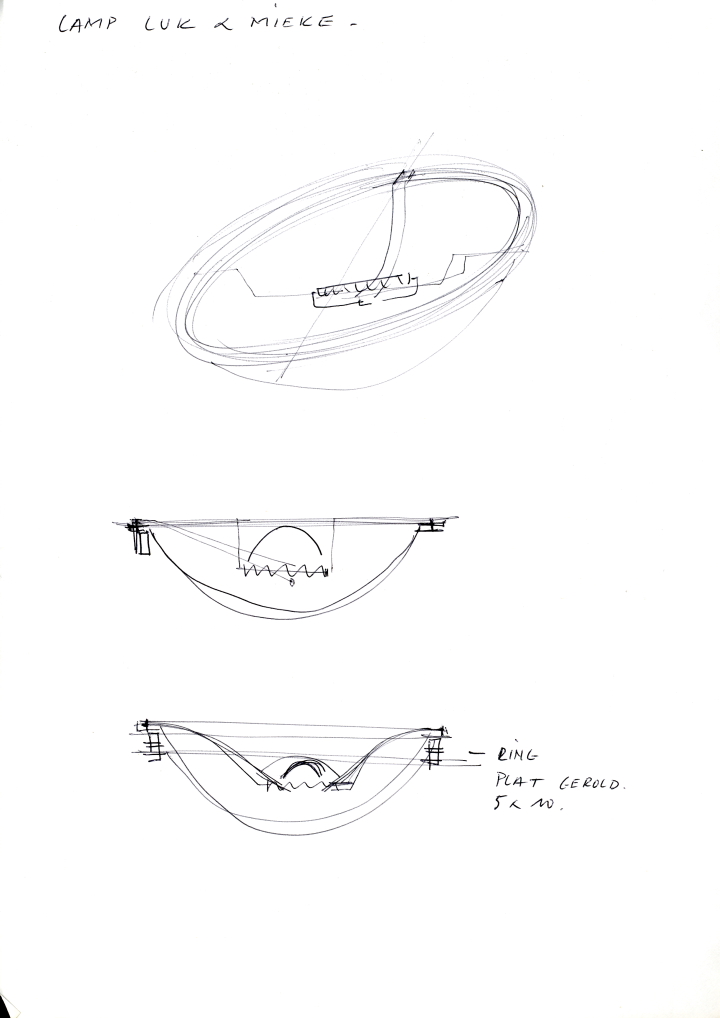 LAMP LUK & MIEKE -
- RING
PLAT GEROLD.
5 x 10.